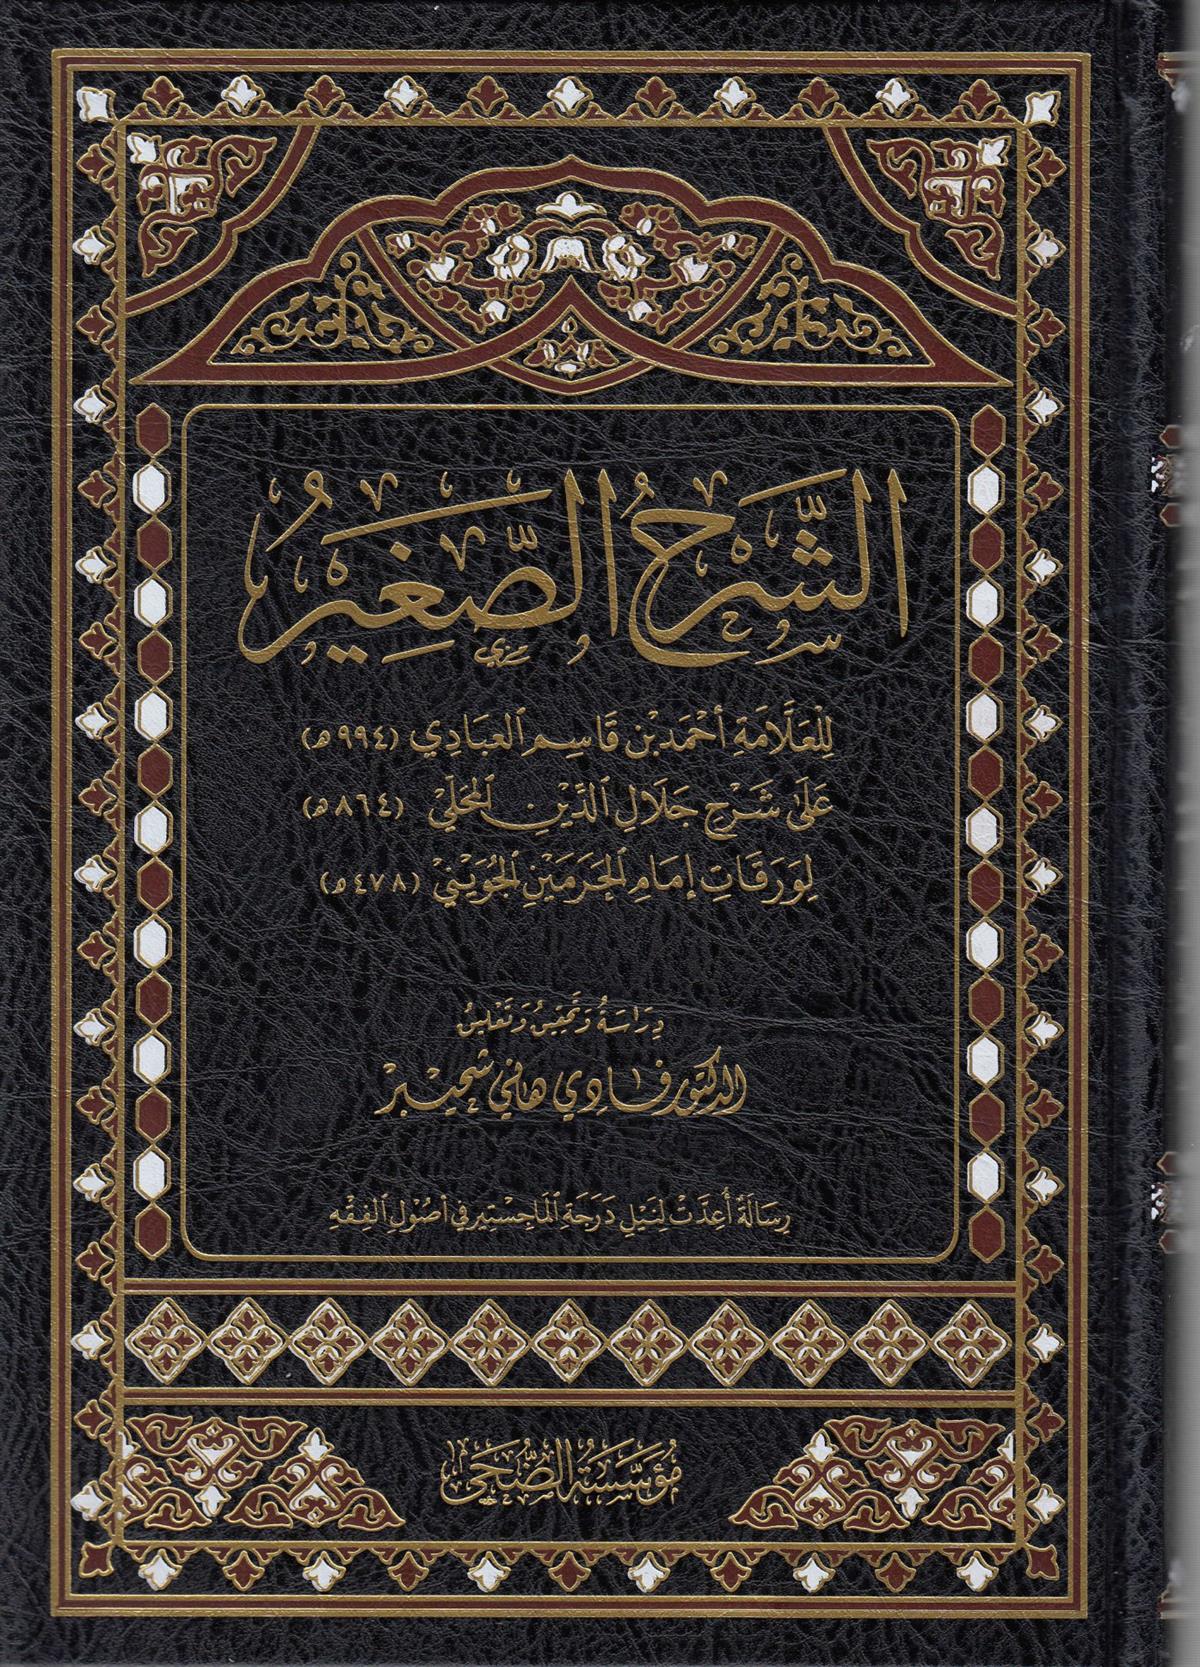 الشَّرْحُ الصَّغِيرُ
لِلْعَلَّامَةِ أَحْمَدَ بْنِ قَاسِمِ العَبَادِي (٩٩٤هـ)
عَلَى شَرْحِ جَلَالِ الدِّينِ المَحَلِّي (٨٦٤هـ)
لِوَرَقَاتِ إِمَامِ الحَرَمَيْنِ الجُوَيْنِيّ (٤٧٨هـ)
دِرَاسَةُ وَتَحْقِيقُ وَتَعْلِيقُ
الدكتور فَادِي هاني شحيبر
رِسَالَةٌ أُعِدَّتْ لِنَيْلِ دَرَجَةِ المَاجِسْتِيرِ فِي أُصُولِ الفِقْهِ
مُؤَسَّسَةُ الضُّحَى